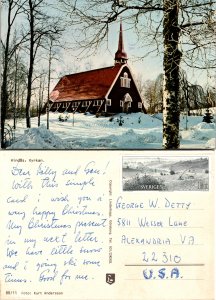 Ringsås. Kyrkan.
SVERIGE
Dear Billy and Geo.!
With this simple
card i wish you a
very happy Christmas.
My Christmas present
in my next letter.
We have little snow
and i going ski some
times. Good for me.
GEORGE W. DETTY
5811 WESSEX LANE
ALEXANDRIA VA.
22310
U.S.A.
Foto: Kurt Andersson